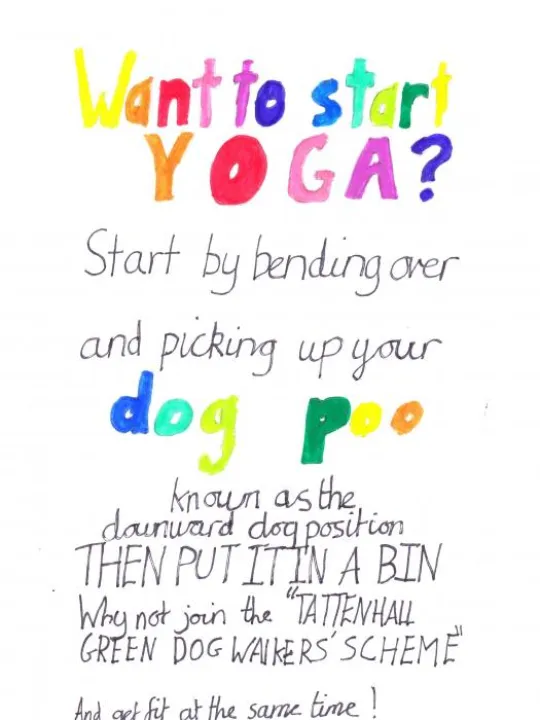 Want to start
YOGA?
Start by bending over
and picking up your
dog poo
known as the
downward dog position
THEN PUT IT IN A BIN
Why not join the "TATTENHALL
GREEN DOG WALKERS' SCHEME"
And get fit at the same time!